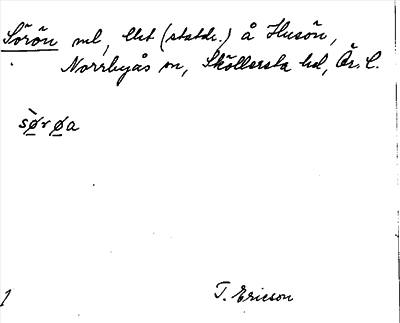 Sörön ml, lht (statdr.) å Husön,
Norrbyås sn, Sköllersta hd, Ör. l.
sø̀røa
1
T. Ericson